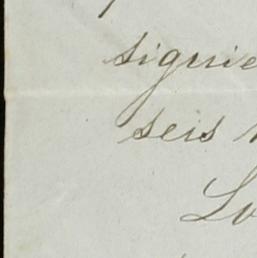 siguie
seis
Lo